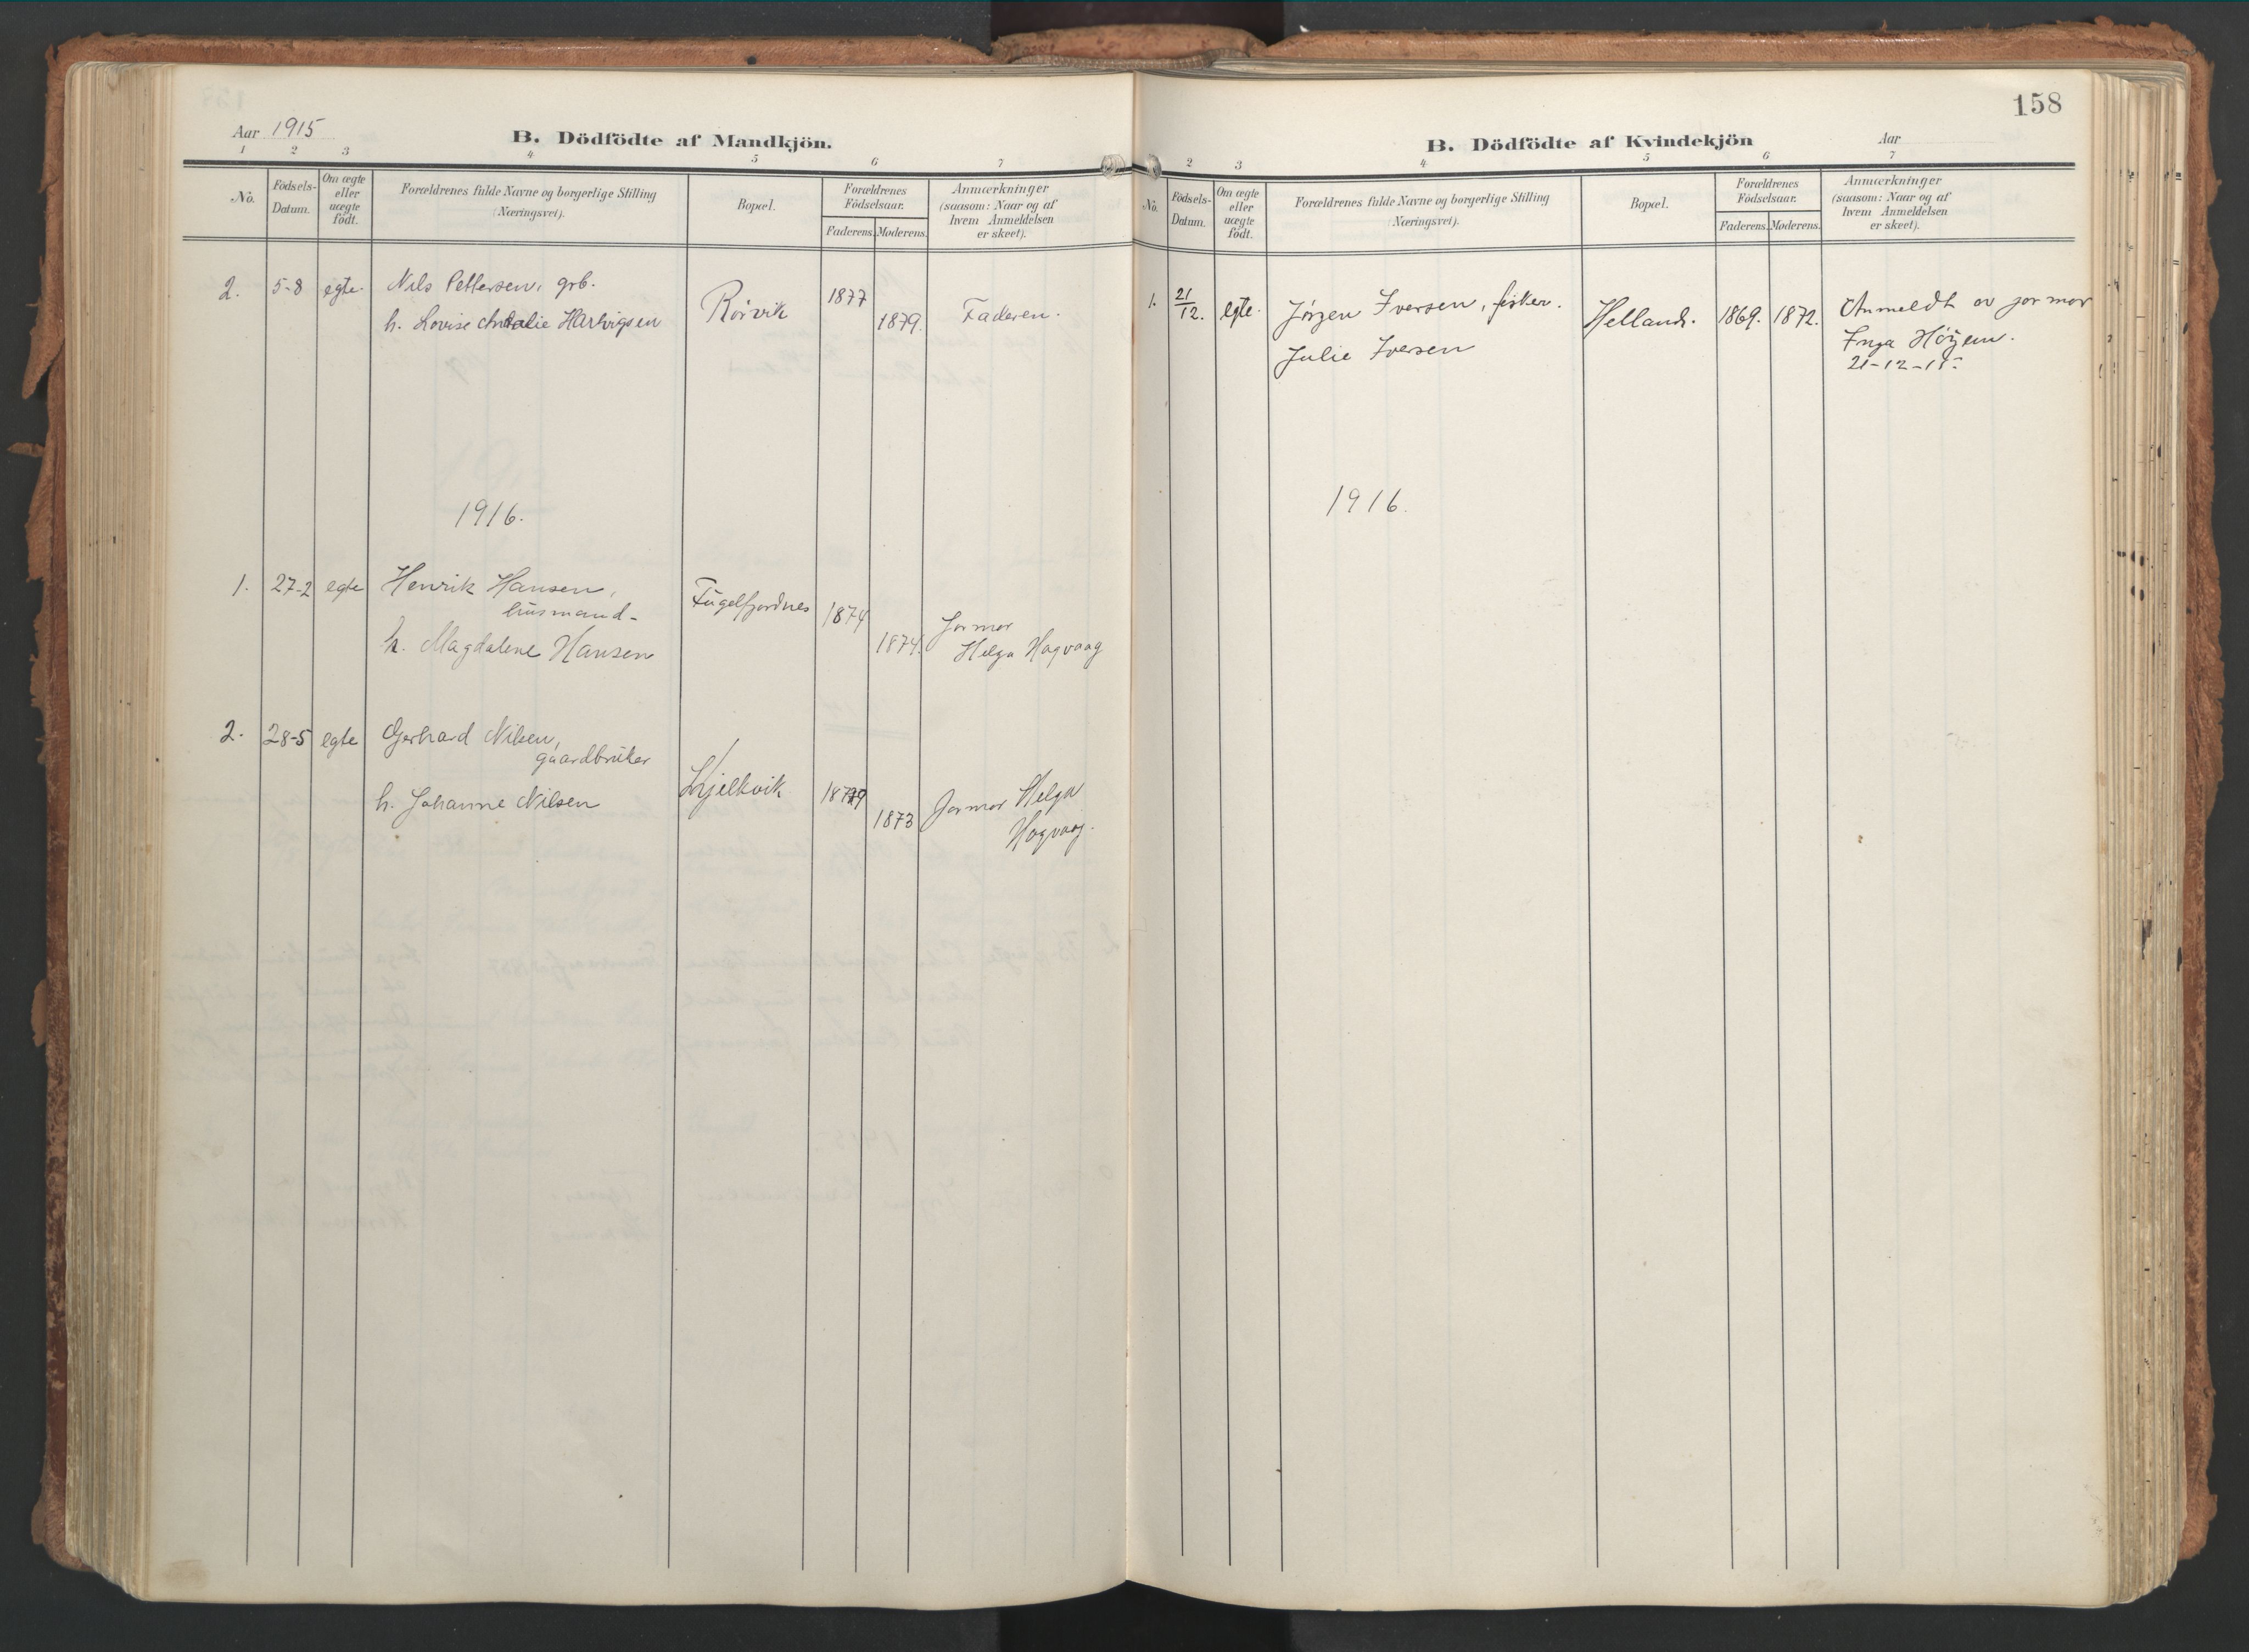 158
Aar 1915
B. Dödfödte af Mandkjön.
1 2 3 4 5 6 7
No.
Födsels-
Datum.
Om ægte
eller
uægte
födt.
Forældrenes fulde Navne og borgerlige Stilling
(Næringsvei).
Bopæl.
Forældrenes
Födselsaar.
Faderens. Moderens.
Anmærkninger
(saasom: Naar og af
hvem Anmeldelsen
er skeet).
2. 5-8 egte. Nils Pettersen, grb. Rörvik 1877
h. Lovise Hartvigsen 1879. Faderen.
1916.
1. 27-2 egte Henrik Hansen,
husmand- Fügelfjordnes 1874
h. Magdalene Hansen 1874. Jormor
Helga Hagvaag
2. 28-5 egte Gerhard Nilsen,
gaardbruker
h. Johanne Nilsen Kjelkvik 1879
1873 Jormor Helga
Hagvaag.
B. Dödfödte af Kvindekjön
Aar
2 3 4 5 6 7
No.
Födsels-
Datum.
Om ægte
eller
uægte
födt.
Forældrenes fulde Navne og borgerlige Stilling
(Næringsvei).
Bopæl.
Forældrenes
Födselsaar.
Faderens. Moderens.
Anmærkninger
(saasom: Naar og af
hvem Anmeldelsen
er skeet).
1. 21/12. egte. Jörgen Iversen, fisker. Helland. 1869. 1872. Anmeldt av jormor
Julie Iversen Inga
21-12-15.
1916.